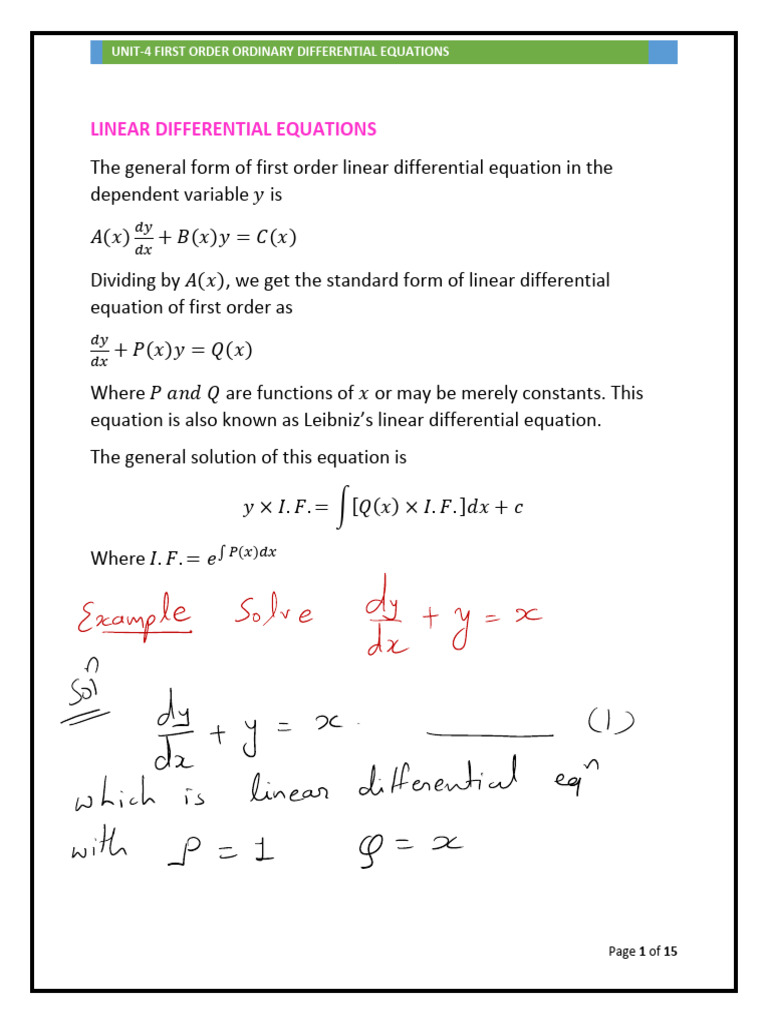 UNIT-4 FIRST ORDER ORDINARY DIFFERENTIAL EQUATIONS
LINEAR DIFFERENTIAL EQUATIONS
The general form of first order linear differential equation in the
dependent variable 𝑦 is
𝐴(𝑥) 𝑑𝑦/𝑑𝑥 + 𝐵(𝑥)𝑦 = 𝐶(𝑥)
Dividing by 𝐴(𝑥), we get the standard form of linear differential
equation of first order as
𝑑𝑦/𝑑𝑥 + 𝑃(𝑥)𝑦 = 𝑄(𝑥)
Where 𝑃 𝑎𝑛𝑑 𝑄 are functions of 𝑥 or may be merely constants. This
equation is also known as Leibniz’s linear differential equation.
The general solution of this equation is
𝑦 × 𝐼. 𝐹. = ∫[𝑄(𝑥) × 𝐼. 𝐹. ]𝑑𝑥 + 𝑐
Where 𝐼. 𝐹. = 𝑒^∫ 𝑃(𝑥)𝑑𝑥
Example Solve dy/dx + y = x
Solⁿ
dy/dx + y = x. ______ (1)
which is linear differential eqⁿ
with P = 1 Q = x
Page 1 of 15